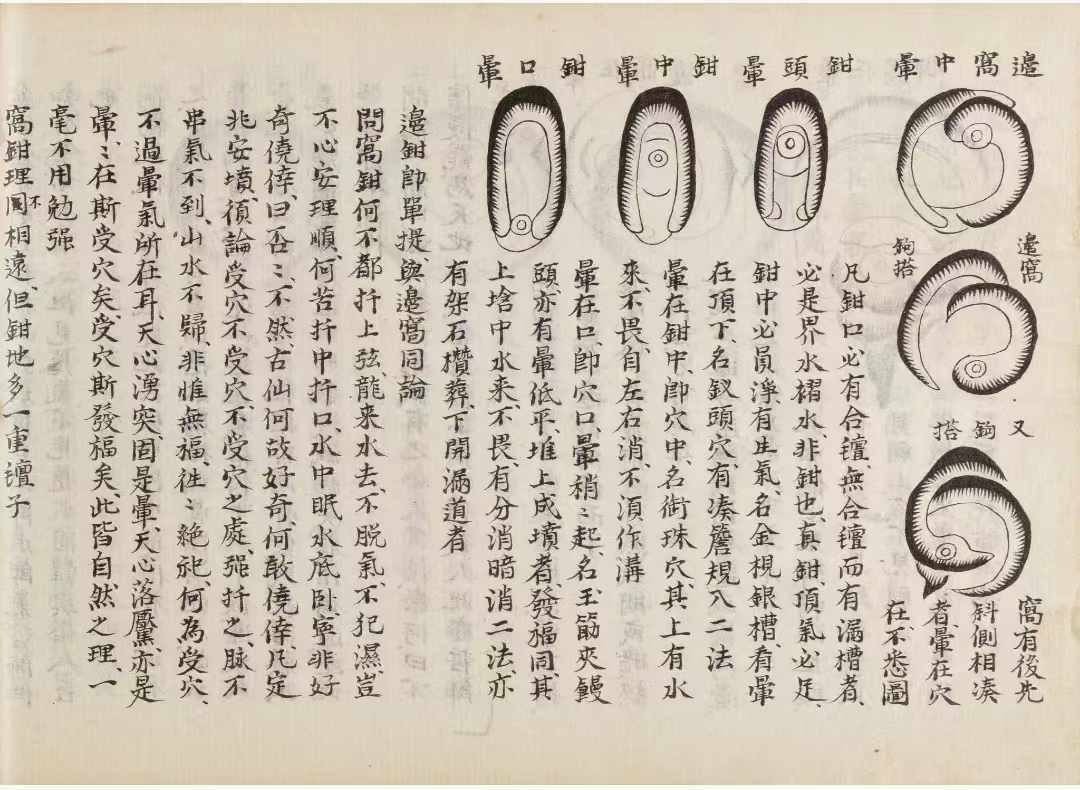 邉窩中暈
邉窩鉤搭
又鉤搭
窩有後先
斜側相湊
者暈在穴
在不悉圖
鉗頭暈
鉗中暈
鉗口暈
凡鉗口必有合䥣無合䥣而有漏槽者
必是界水褶水非鉗也真鉗頂氣必足
鉗中必員淨有生氣名金梘銀槽看暈
在頂下名釵頭穴有湊簷規入二法
暈在鉗中卽穴中名銜珠穴其上有水
來不畏自左右消不須作溝
暈在口卽穴口暈稍〻起名玉筯夾饅
頭亦有暈低平堆上成墳者發福同其
上堷中水来不畏有分消暗消二法亦
有架石櫕葬下開漏道者
邉鉗卽單提與邉窩同論
問窩鉗何不都扦上弦龍来水去不脱氣不犯濕豈
不心安理順何苦扦中扦口水中眠水底卧寧非好
奇僥倖曰否〻不然古仙何故好奇何敢僥倖凡定
兆安墳須論受穴不受穴不受穴之處强扦之脉不
串氣不到山水不歸非惟無福徃〻絶祀何為受穴
不過暈氣所在耳天心湧突固是暈天心落䘆亦是
暈〻在斯受穴矣受穴斯發福矣此皆自然之理一
毫不用勉强
窩鉗理圖不相遠但鉗地多一重䥣子